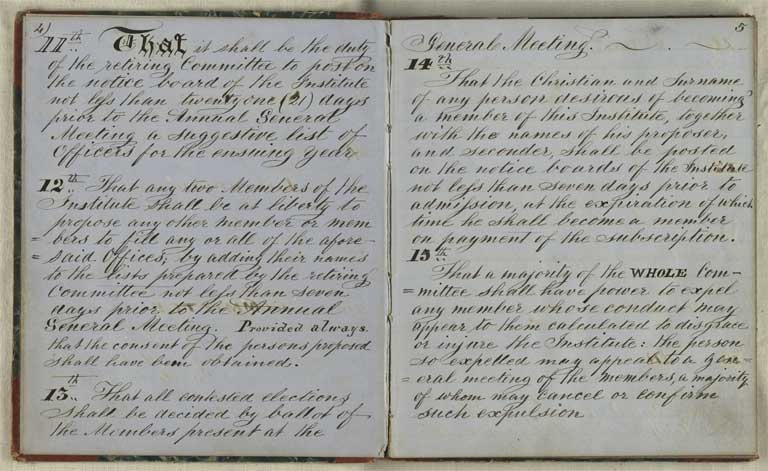 4)
11th.. That it shall be the duty
of the retiring Committee to post on
the notice board of the Institute
not less than twentyone (21) days
prior to the Annual General
Meeting a suggestive list of
Officers for the ensuing Year
12th.. That any two Members of the
Institute shall be at liberty to
propose any other member or mem
=bers to fill any or all of the afore-
=said Offices, by adding their names
to the lists prepared by the retiring
Committee not less than seven
days prior to the Annual
General Meeting. Provided always
that the consent of the persons proposed
shall have been obtained.
13th.. That all contested elections
shall be decided by ballot of
the Members present at the
5
General Meeting.
14th
That the Christian and Surname
of any person desirous of becoming
a member of this Institute, together
with the names of his proposer,
and seconder, shall be posted
on the notice boards of the Institute
not less than seven days prior to
admission, at the expiration of which
time he shall become a member
on payment of the subscription.
15th
That a majority of the WHOLE Com-
=mittee shall have power to expel
any member whose conduct may
appear to them calculated to disgrace
or injure the Institute: the person
so expelled may appeal to a Gen=
=eral meeting of the members, a majority
of whom may cancel or confirm
such expulsion